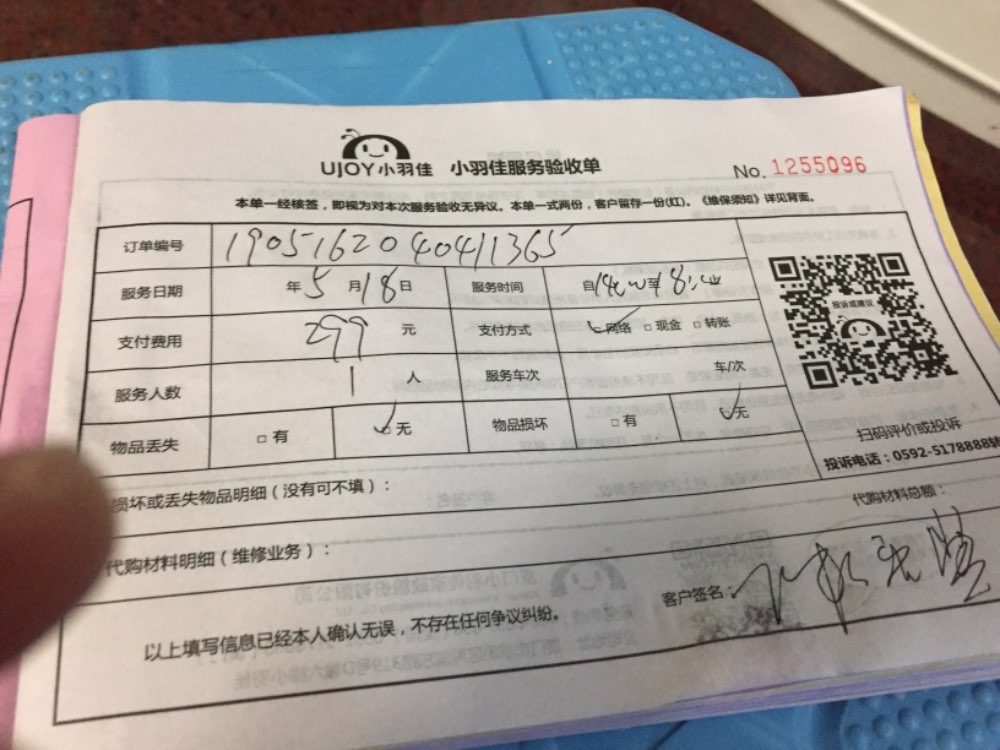 UJOY小羽佳 小羽佳服务验收单 No.1255096
本单一经核签，即视为对本次服务验收无异议。本单一式两份，客户留存一份(红)。《维保须知》详见背面。
订单编号 1905162040411365
服务日期 年5月18日 服务时间 自 至
支付费用 299 元 支付方式 网络 □现金 □转账
服务人数 1 人 服务车次 车/次
物品丢失 □有 □无 物品损坏 □有 □无
投诉或建议
扫码评价或投诉
投诉电话：0592-5178888转
损坏或丢失物品明细（没有可不填）：
代购材料总额：
代购材料明细（维修业务）：
客户签名：
以上填写信息已经本人确认无误，不存在任何争议纠纷。